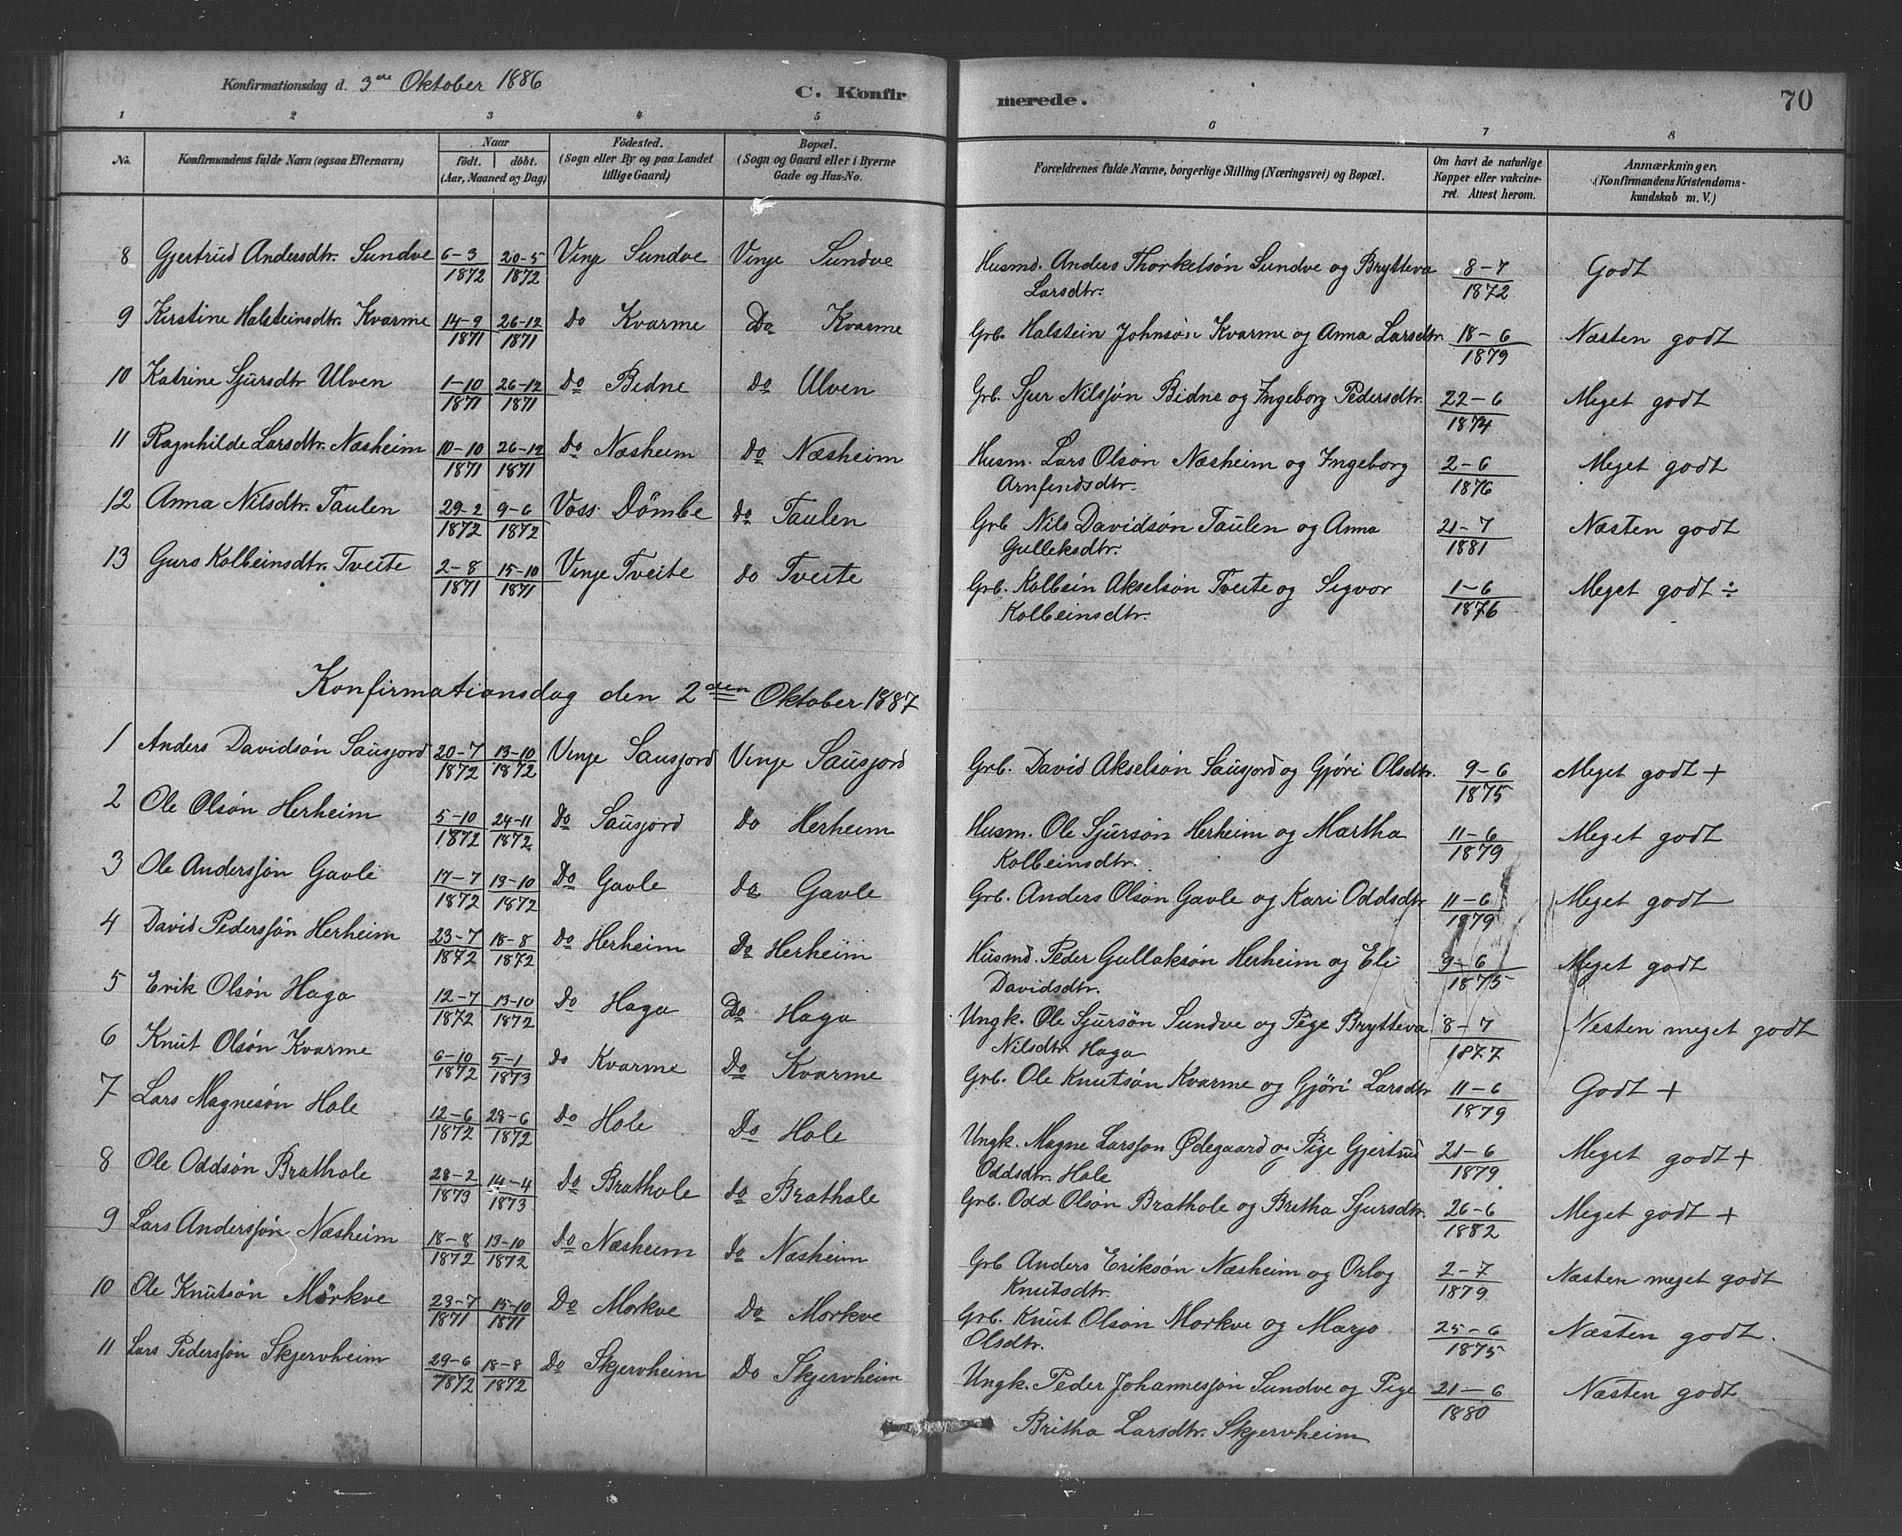 Konfirmationsdag d. 3die Oktober 1886 C. Konfirmerede. 70
1 2 3 4 5 6 7 8
No. Konfirmandens fulde Navn (ogsaa Efternavn) Naar født. døbt. (Aar, Maaned og Dag) Fødested. (Sogn eller By og paa Landet tillige Gaard) Bopæl. (Sogn og Gaard eller i Byerne Gade og Hus-No. Forældrenes fulde Navne, borgerlige Stilling (Næringsvei) og Bopæl. Om havt de naturlige Kopper eller vakcineret. Attest herom. Anmærkninger, (Konfirmandens Kristendomskundskab m. V.)
8 Gjertrud Andersdtr. Sundve 6-3 1872 20-5 1872 Vinje Sundve Vinje Sundve Husmd. Anders Thorkelsøn Sundve og Brytteva Larsdtr. 8-7 1872 Godt
9 Kirstine Halsteinsdtr. Kvarme 14-9 1871 26-12 1871 do Kvarme Do Kvarme Grb. Halstein Johnsøn Kvarme og Anna Larsdtr. 18-6 1879 Næsten godt
10 Katrine Sjursdtr Ulven 1-10 1871 26-12 1871 do Bidne do Ulven Grb. Sjur Nilssøn Bidne og Ingeborg Pedersdtr. 22-6 1874 Meget godt
11 Ragnhilde Larsdtr. Næsheim 10-10 1871 26-12 1871 do Næsheim do Næsheim Husm. Lars Olsøn Næsheim og Ingeborg Arnfindsdtr. 2-6 1876 Meget godt
12 Anna Nilsdtr. Taulen 29-2 1872 9-6 1872 Voss Dömbe do Taulen Grb Nils Davidsøn Taulen og Anna Gulleksdtr. 21-7 1881 Næsten godt
13 Guro Kolbeinsdtr. Tveite 2-8 1871 15-10 1871 Vinje Tveite do Tveite Grb. Kolbein Akselsøn Tveite og Sigvor Kolbeinsdtr. 1-6 1876 Meget godt ÷
Konfirmationsdag den 2den Oktober 1887
1 Anders Davidsøn Sausjord 20-7 1872 13-10 1872 Vinje Sausjord Vinje Sausjord Grb. David Akselsøn Sausjord og Gjøri Olsdtr. 9-6 1875 Meget godt +
2 Ole Olsøn Herheim 5-10 1872 24-11 1872 Do Sausjord Do Herheim Husm. Ole Sjursøn Herheim og Martha Kolbeinsdtr. 11-6 1879 Meget godt
3 Ole Anderssøn Gavle 17-7 1872 13-10 1872 Do Gavle Do Gavle Grb. Anders Olsøn Gavle og Kari Oddsdtr 11-6 1879 Meget godt
4 David Pederssøn Herheim 23-7 1872 18-8 1872 Do Herheim Do Herheim Husmd. Peder Gullaksøn Herheim og Eli Davidsdtr. 9-6 1875 Meget godt
5 Erik Olsøn Haga 12-7 1872 13-10 1872 Do Haga Do Haga Ungk. Ole Sjursøn Sundve og Pige Brytteva Nilsdtr. Haga 8-7 1877 Nesten meget godt
6 Knut Olsøn Kvarme 6-10 1872 5-1 1873 do Kvarme Do Kvarme Grb. Ole Knutsøn Kvarme og Gjøri Larsdtr 11-6 1879 Godt +
7 Lars Magnesøn Hole 12-6 1872 28-6 1872 Do Hole Do Hole Ungk. Magne Larsson Ødegaard og Pige Gjertrud Oddsdtr. Hole 21-6 1879 Meget godt +
8 Ole Oddsøn Brathole 28-2 1873 14-4 1873 Do Brathole do Brathole Grb. Odd Olsøn Brathole og Britha Sjursdtr. 26-6 1882 Meget godt +
9 Lars Anderssøn Næsheim 18-8 1872 13-10 1872 Do Næsheim do Næsheim Grb Anders Eriksøn Næsheim og Orlog Knutsdtr. 2-7 1879 Næsten meget godt
10 Ole Knutsøn Mörkve 23-7 1871 15-10 1871 Do Morkve Do Morkve Grb. Knut Olsøn Morkve og Marjo Olsdtr. 25-6 1875 Næsten godt.
11 Lars Pederssøn Skjervheim 29-6 1872 18-8 1872 Do Skjervheim Do Skjervheim Ungk. Peder Johannessøn Sundve og Pige Britha Larsdtr. Skjervheim 21-6 1880 Næsten godt